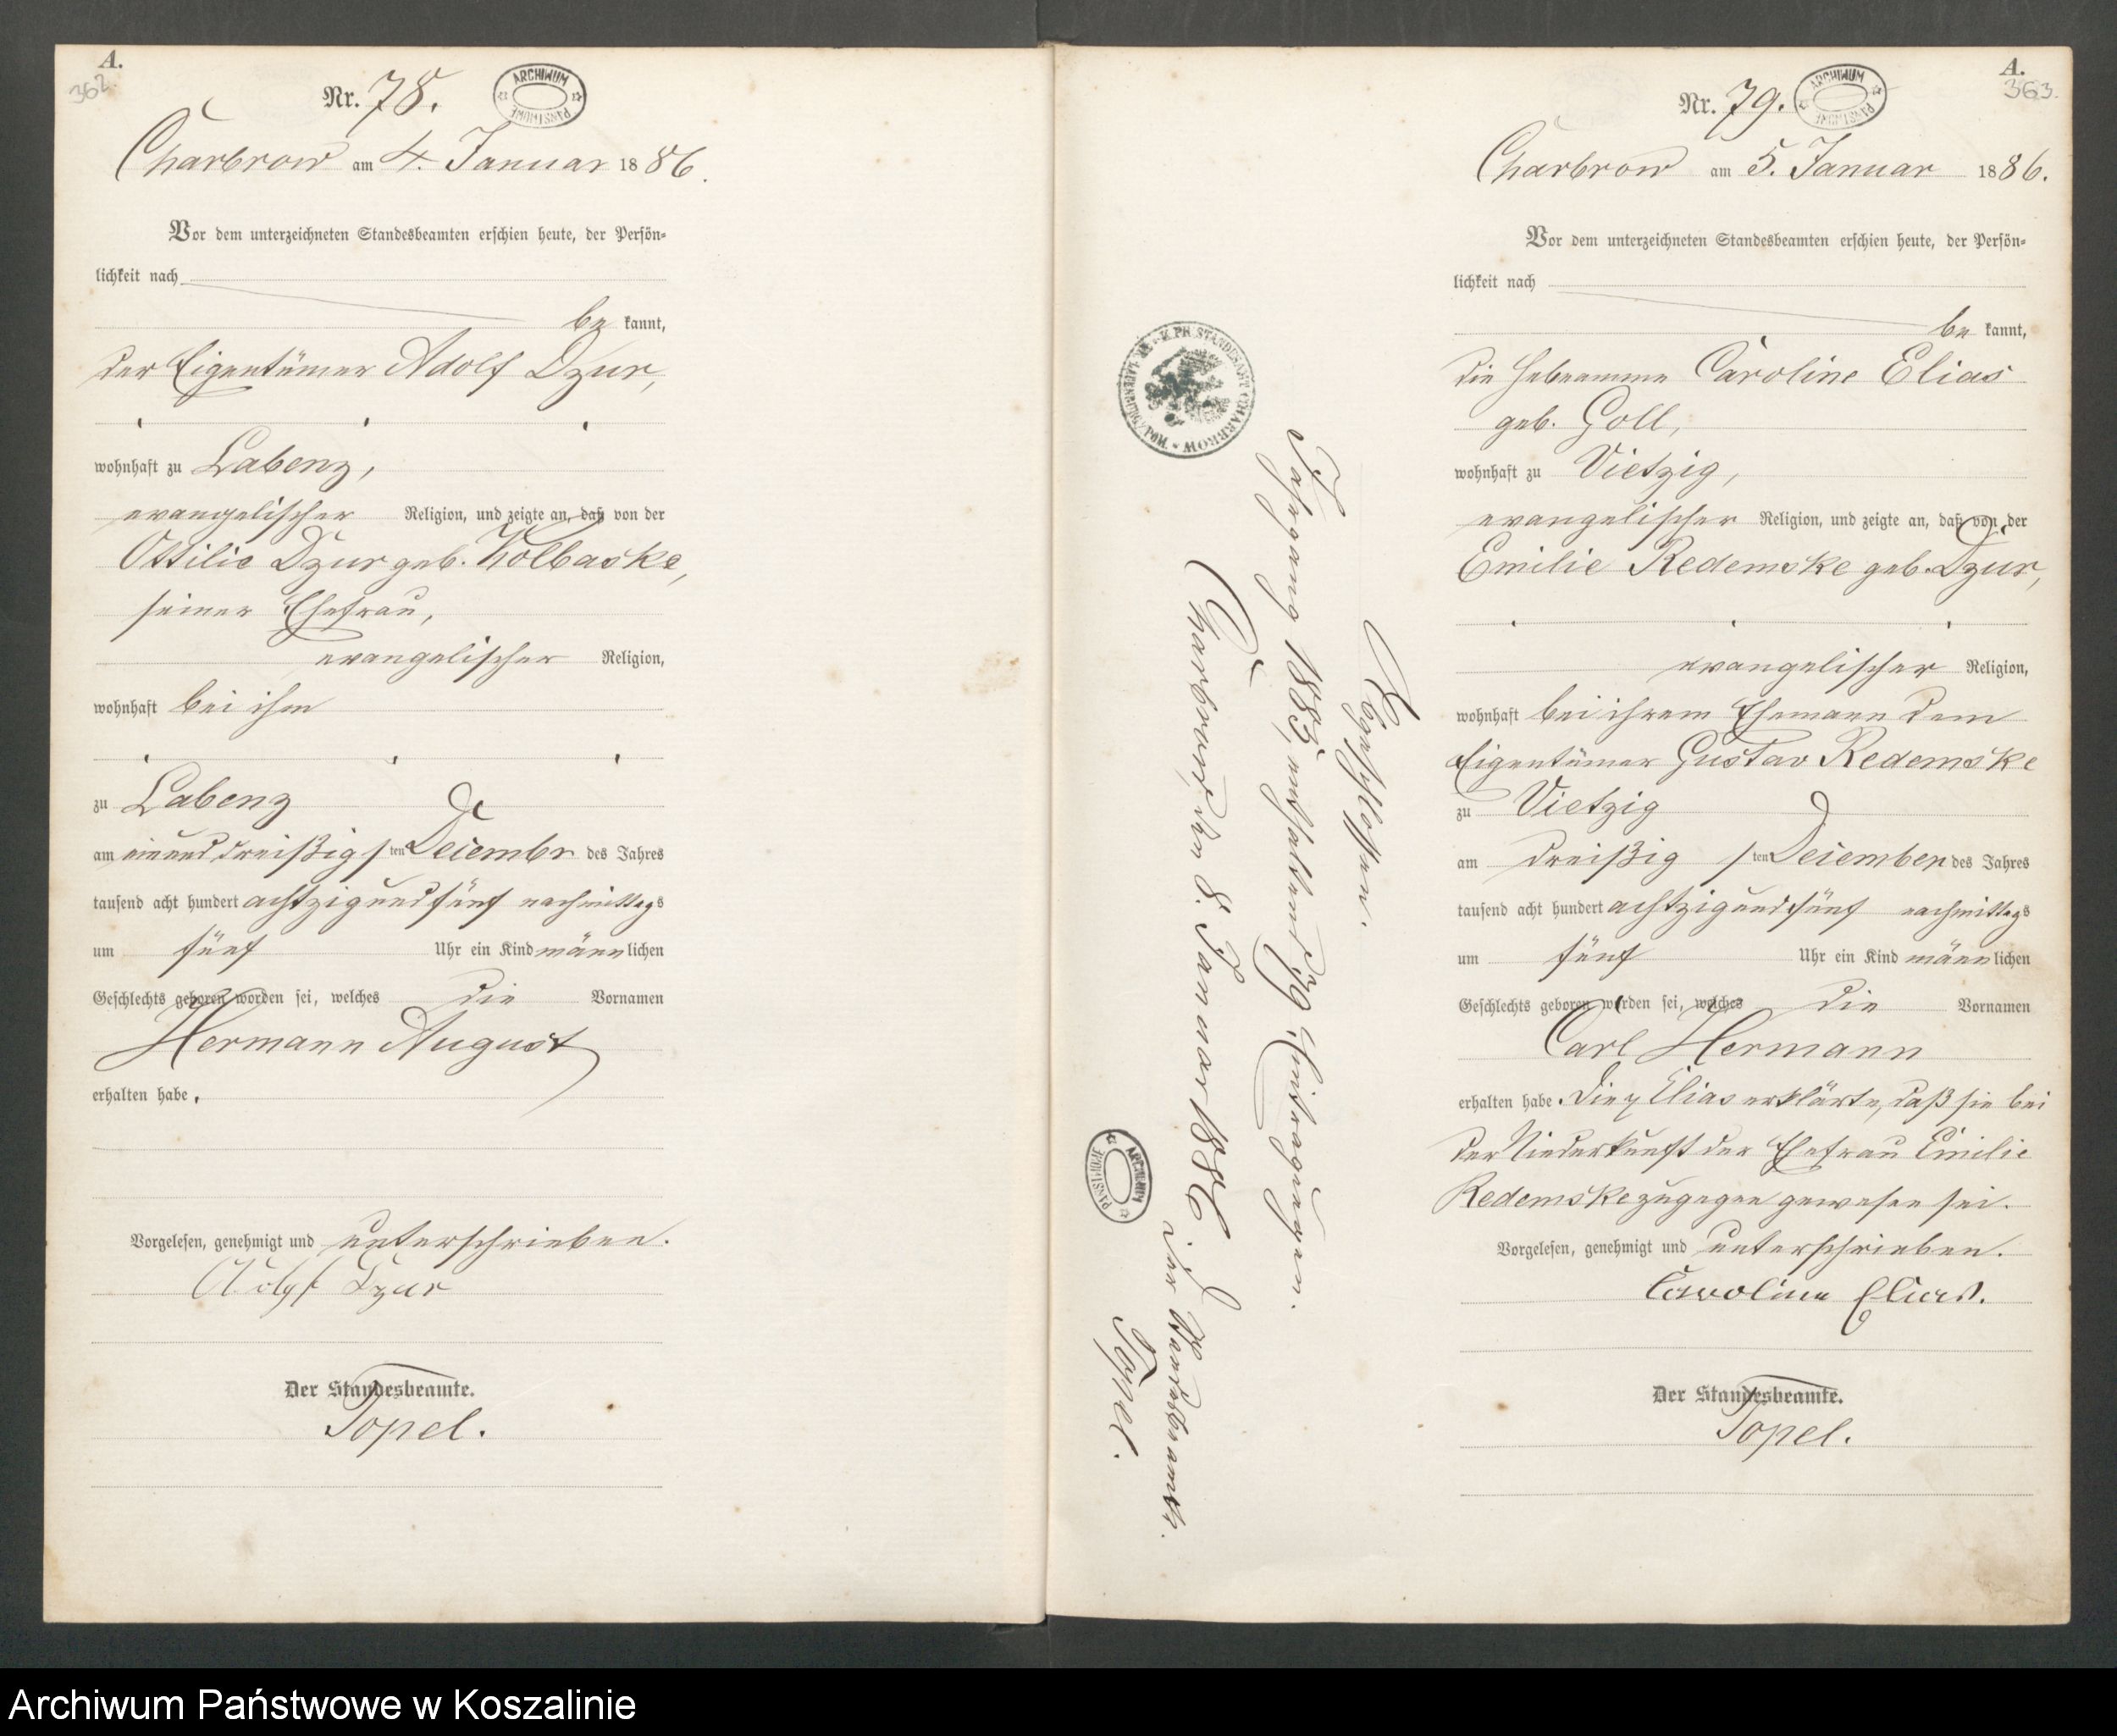 A.
362.
Nr. 78.
ARCHIWUM PAŃSTWOWE
Charbrow am 4. Januar 1886.
Vor dem unterzeichneten Standesbeamten erschien heute, der Persön-
lichkeit nach
be kannt,
der Eigentümer Adolf Dzur,
wohnhaft zu Labenz,
evangelischer Religion, und zeigte an, daß von der
Ottilie Dzur geb. Kolbaske,
seiner Ehefrau,
evangelischer Religion,
wohnhaft bei ihm
zu Labenz
am einunddreißig sten Decembr des Jahres
tausend acht hundert achtzigundfünf nachmittags
um fünf Uhr ein Kind männlichen
Geschlechts geboren worden sei, welches die Vornamen
Hermann August
erhalten habe.
Vorgelesen, genehmigt und unterschrieben.
Adolf Dzur
Der Standesbeamte.
Topel.
STANDESAMT CHARBROW
Abgeschlossen.
Jahrgang 1885, enthaltend 79 Eintragungen.
Charbrow, den 8. Januar 1886.
Der Standesbeamte.
Topel.
ARCHIWUM PAŃSTWOWE
A.
363.
Nr. 79.
ARCHIWUM PAŃSTWOWE
Charbrow am 5. Januar 1886.
Vor dem unterzeichneten Standesbeamten erschien heute, der Persön-
lichkeit nach
be kannt,
die Hebeamme Caroline Elias
geb. Goll,
wohnhaft zu Vietzig,
evangelischer Religion, und zeigte an, daß von der
Emilie Redemske geb. Dzur,
evangelischer Religion,
wohnhaft bei ihrem Ehemann dem
Eigentümer Gustav Redemske
zu Vietzig
am dreißig sten December des Jahres
tausend acht hundert achtzigundfünf nachmittags
um fünf Uhr ein Kind männlichen
Geschlechts geboren worden sei, welches die Vornamen
Carl Hermann
erhalten habe. Die Elias erklärte, daß sie bei
der Niederkunft der Ehefrau Emilie
Redemske zugegen gewesen sei.
Vorgelesen, genehmigt und unterschrieben.
Caroline Elias.
Der Standesbeamte.
Topel.
Archiwum Państwowe w Koszalinie